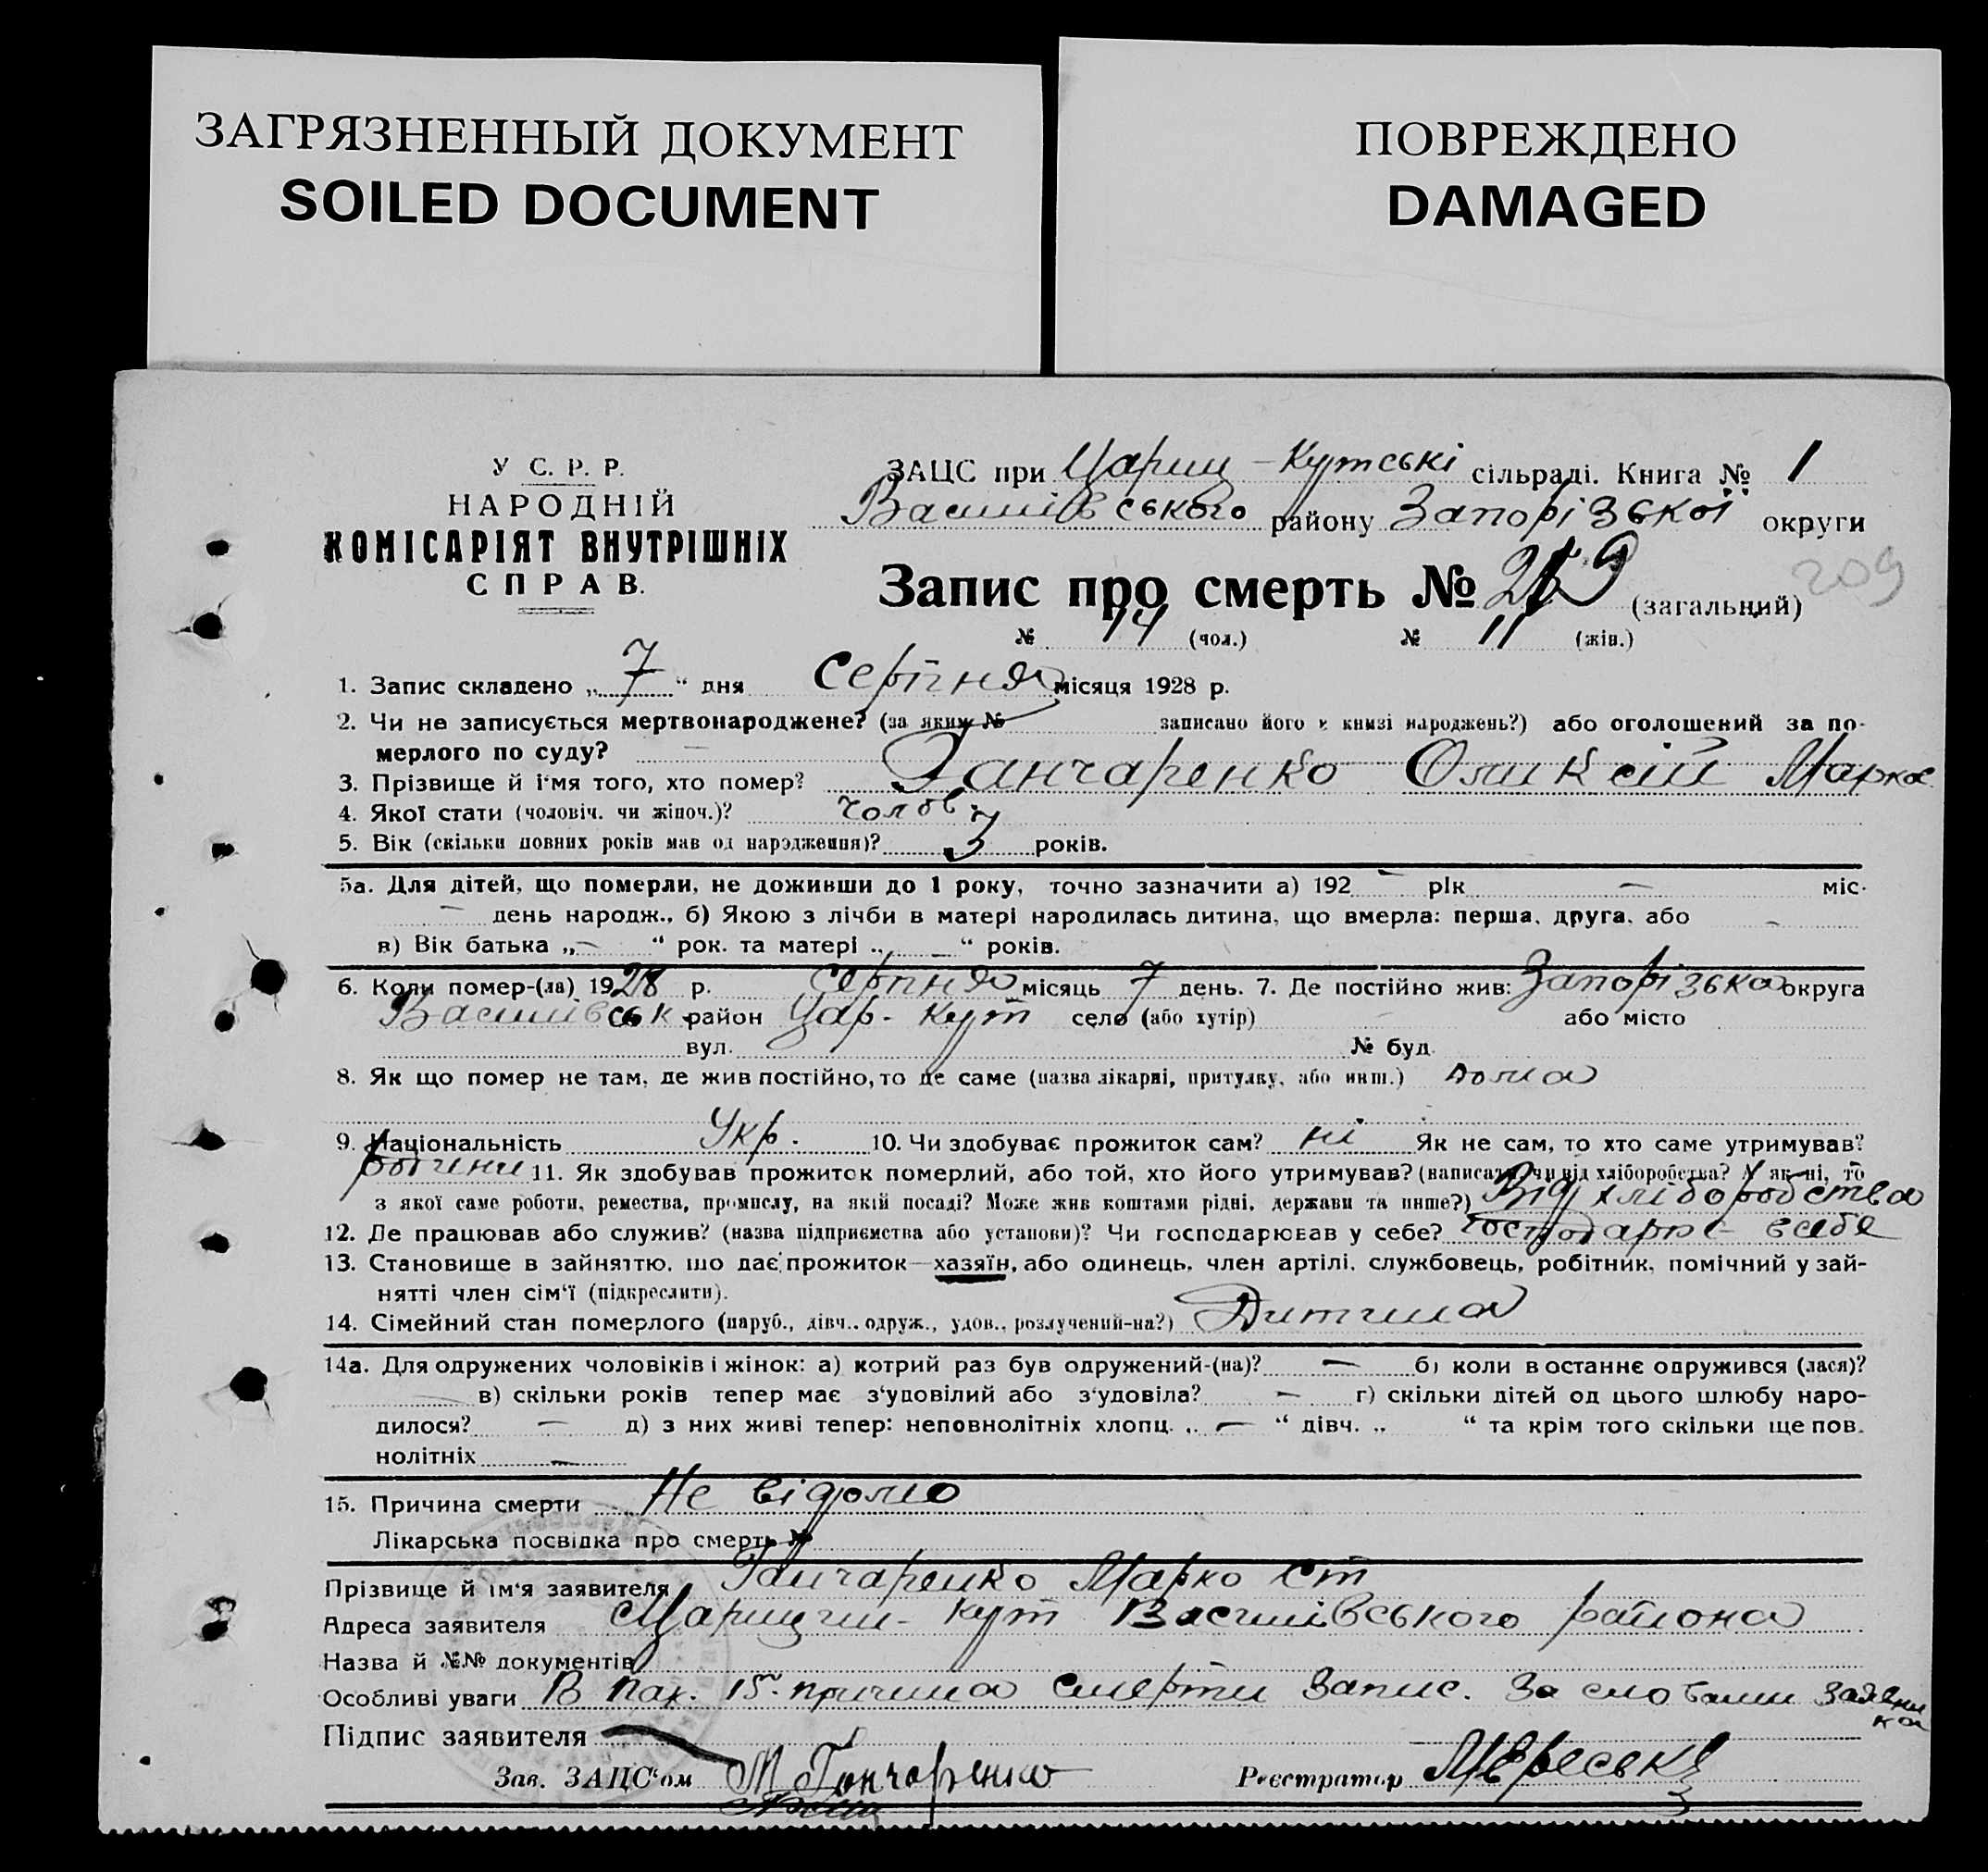 ЗАГРЯЗНЕННЫЙ ДОКУМЕНТ
SOILED DOCUMENT
ПОВРЕЖДЕНО
DAMAGED
У С. Р. Р.
НАРОДНІЙ
КОМІСАРІЯТ ВНУТРІШНІХ
СПРАВ.
ЗАЦС при Цариц-Кутські сільраді. Книга № 1
Василівського району Запорізької округи
Запис про смерть № (загальний) 209
№ 14 (чол.) № 11 (жін.)
1. Запис складено „ 7 “ дня Серпня місяця 1928 р.
2. Чи не записується мертвонароджене? (за яким № записано його в книзі народжень?) або оголошений за по-
мерлого по суду? —
3. Прізвище й ім'я того, хто помер? Ганчаренко Оликсій Марка
4. Якої стати (чоловіч. чи жіноч.)? чолов.
5. Вік (скільки повних років мав од народження)? 3 років.
5а. Для дітей, що померли, не доживши до 1 року, точно зазначити а) 192 — рік — міс.
— день народж., б) Якою з лічби в матері народилась дитина, що вмерла: перша, друга, або —
в) Вік батька „ — “ рок. та матері „ — “ років.
6. Коли помер-(ла) 1928 р. Серпня місяць 7 день. 7. Де постійно жив: Запорізька округа
Василівськ. район Цар-Кут село (або хутір) або місто
вул. № буд.
8. Як що помер не там, де жив постійно, то де саме (назва лікарні, притулку, або инш.) дома
9. Національність Укр. 10. Чи здобуває прожиток сам? ні Як не сам, то хто саме утримував?
11. Як здобував прожиток померлий, або той, хто його утримував? (написати, чи від хліборобства? А як ні, то
з якої саме роботи, ремества, промислу, на якій посаді? Може жив коштами рідні, держави та инше?) Від хліборобства
12. Де працював або служив? (назва підприємства або установи)? Чи господарював у себе? господарює в себе
13. Становище в зайняттю, що дає прожиток—хазяїн, або одинець, член артілі, службовець, робітник, помічний у зай-
нятті член сім'ї (підкреслити).
14. Сімейний стан померлого (паруб., дівч., одруж., удов., розлучений-на?) Дитина
14а. Для одружених чоловіків і жінок: а) котрий раз був одружений-(на)? — б) коли в останнє одружився (лася)?
— в) скільки років тепер має з'удовілий або з'удовіла? — г) скільки дітей од цього шлюбу наро-
дилося? — д) з них живі тепер: неповнолітніх хлопц. „ — “ дівч. „ “ та крім того скільки ще пов.
нолітніх —
15. Причина смерти Не відомо
Лікарська посвідка про смерть №
Прізвище й ім'я заявителя Ганчаренко Марко Ст
Адреса заявителя Царицин-Кут Василівського района
Назва й №№ документів
Особливі уваги В пах. 15. причина смерти запис. За словами заявника
Підпис заявителя
Зав. ЗАЦС'ом М Гончаренко Реєстратор